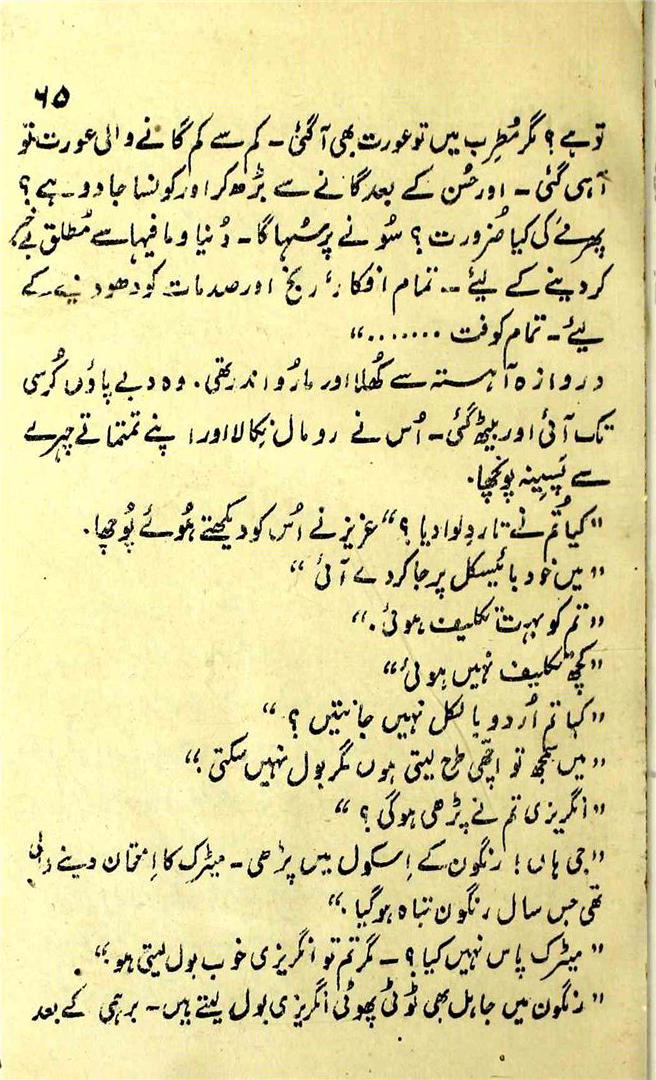 ۶۵
تو ہے؟ مگر مُطرِب میں تو عورت بھی آ گئی۔ کم سے کم گانے والی عورت تو
آ ہی گئی۔ اور حُسن کے بعد گانے سے بڑھ کر اور کونسا جادو ہے؟
پھرنے کی کیا ضرورت؟ سُونے پر سُہاگا۔ دُنیا و ما فیہا سے مُطلق بے خبر
کر دینے کے لیئے۔ تمام افکار، رنج اور صدمات کو دھو دنیے کے
لیئے۔ تمام کوفت ......."
دروازہ آہستہ سے کُھلا اور مارُوا اندر تھی۔ وہ دبے پاؤں کُرسی
تک آئی اور بیٹھ گئی۔ اُس نے رومال نکالا اور اپنے تمتماتے چہرے
سے پَسِینہ پونچھا۔
"کیا تُم نے تار دِلوا دیا؟" عزیز نے اُس کو دیکھتے ہُوئے پُوچھا۔
"میں خود بائیسکل پر جا کر دے آئی"
"تم کو بہت تکلیف ہوئی۔"
"کچھ تکلیف نہیں ہوئی"
"کیا تم اُردو بالکل نہیں جانتیں؟"
"میں سمجھ تو اچھّی طرح لیتی ہوں مگر بول نہیں سکتی۔"
"انگریزی تم نے پڑھی ہوگی؟"
"جی ہاں! رنگون کے اِسکول میں پڑھی۔ میٹرک کا اِمتحان دینے والی
تھی جس سال رنگون تباہ ہوگیا۔"
"میٹرک پاس نہیں کیا؟۔ مگر تم تو انگریزی خوب بول لیتی ہو۔"
"رنگون میں جاہل بھی ٹوٹی پھوٹی انگریزی بول لیتے ہیں۔ برہمی کے بعد